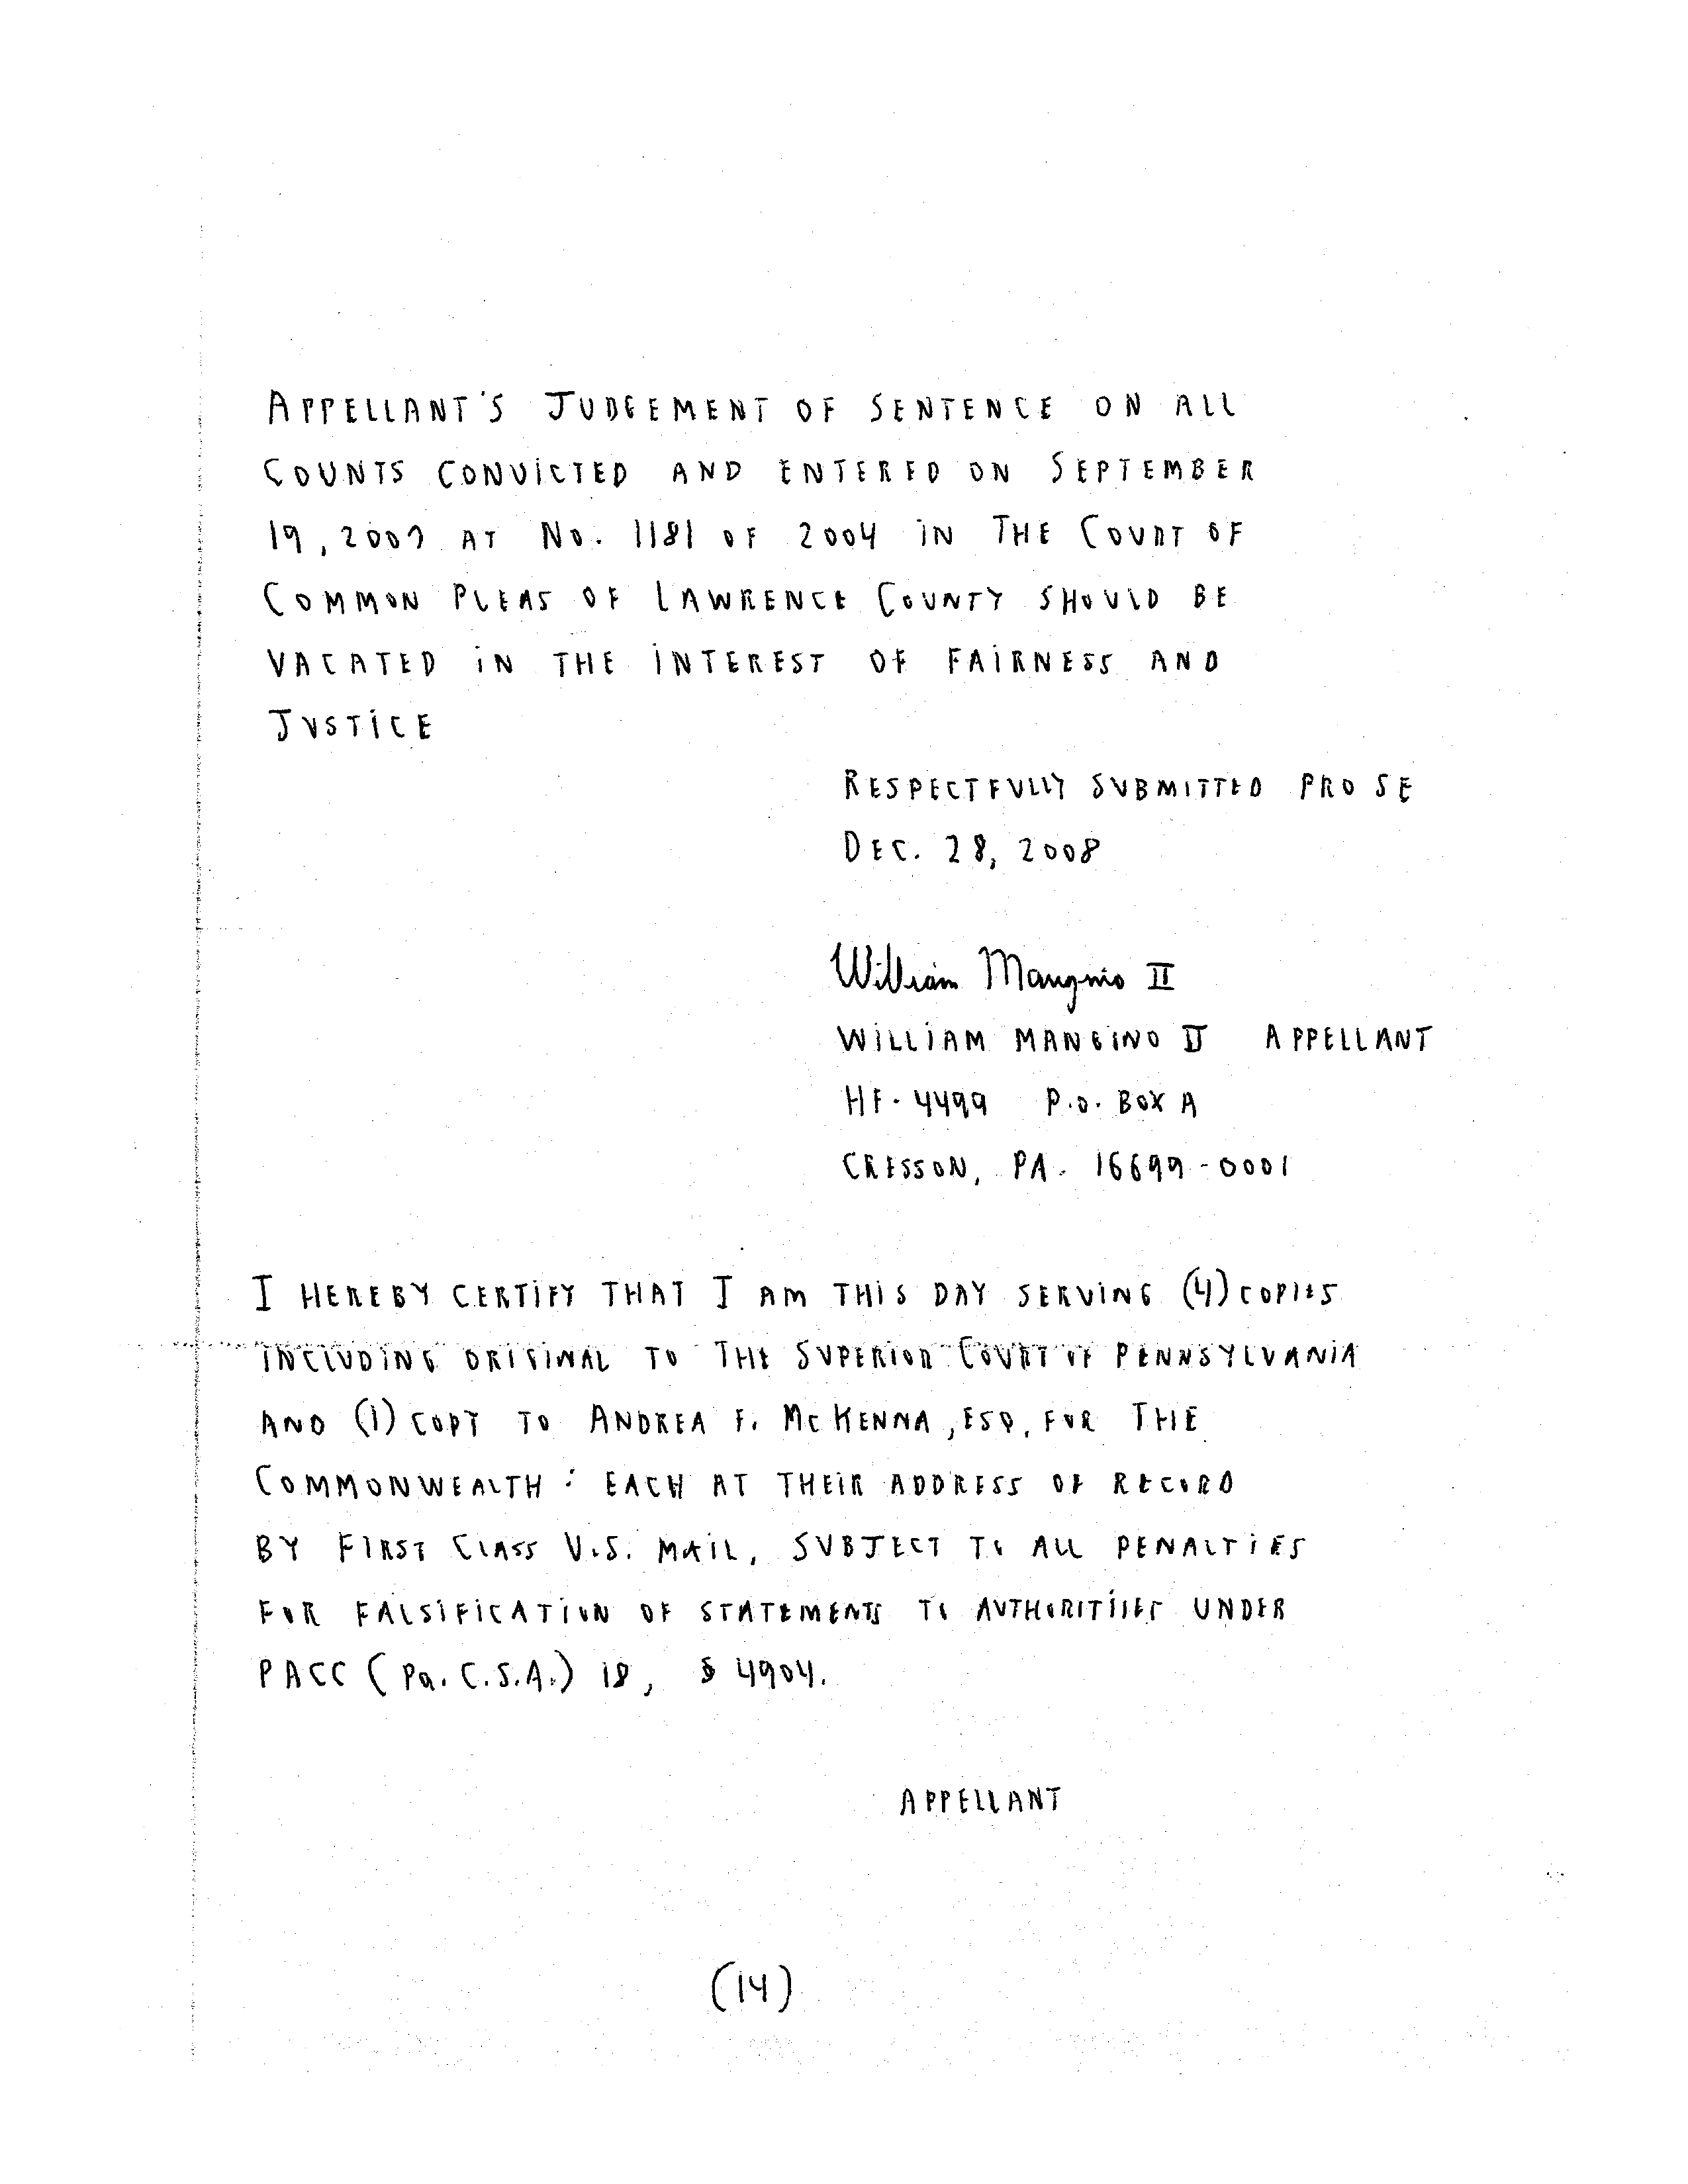 APPELLANT'S JUDGEMENT OF SENTENCE ON ALL
COUNTS CONVICTED AND ENTERED ON SEPTEMBER
19, 2007 AT NO. 1181 OF 2004 IN THE COURT OF
COMMON PLEAS OF LAWRENCE COUNTY SHOULD BE
VACATED IN THE INTEREST OF FAIRNESS AND
JUSTICE
RESPECTFULLY SUBMITTED PRO SE
DEC. 28, 2008
William Mangino II
WILLIAM MANGINO II APPELLANT
HF-4499 P.O. BOX A
CRESSON, PA. 16699-0001
I HEREBY CERTIFY THAT I AM THIS DAY SERVING (4) COPIES
INCLUDING ORIGINAL TO THE SUPERIOR COURT OF PENNSYLVANIA
AND (1) COPY TO ANDREA F. McKENNA, ESQ. FOR THE
COMMONWEALTH: EACH AT THEIR ADDRESS OF RECORD
BY FIRST CLASS U.S. MAIL, SUBJECT TO ALL PENALTIES
FOR FALSIFICATION OF STATEMENTS TO AUTHORITIIES UNDER
PACC (Pa. C.S.A.) 18, § 4904.
APPELLANT
(14)